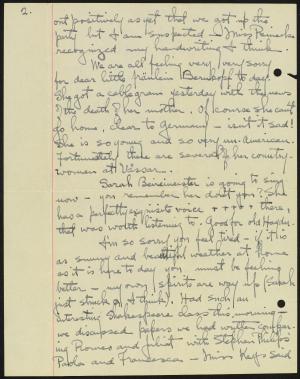 2.
out positively as yet that we got up the
party but I am suspected – Miss
recognized my handwriting I think.
We are all feeling very, very sorry
for dear little fräulein to-day.
She got a cablegram yesterday with the news
of the death of her mother. Of course she can't
go home, clear to Germany – isn't it sad!
She is so young and so very un-American.
Fortunately there are several of her country-
women at Vassar.
Sarah is going to sing
now – you remember her don't you? She
has a perfectly exquisite voice ...... there,
that was worth listening to. Good for old Haydn.
I'm so sorry you feel tired – if it is
as sunny and beautiful weather at home
as it is here to day you must be feeling
better – my own spirits are way up (Sarah
just struck g, I think). Had such an
interesting Shakespeare class this morning –
we discussed papers we had written compar-
ing Romeo and Juliet with Stephen Phillips
Paolo and Francesca – Miss Keys said